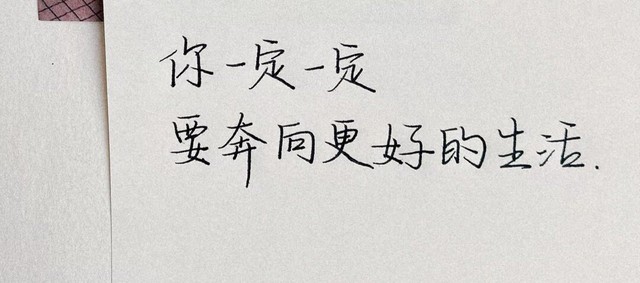 你一定一定
要奔向更好的生活.